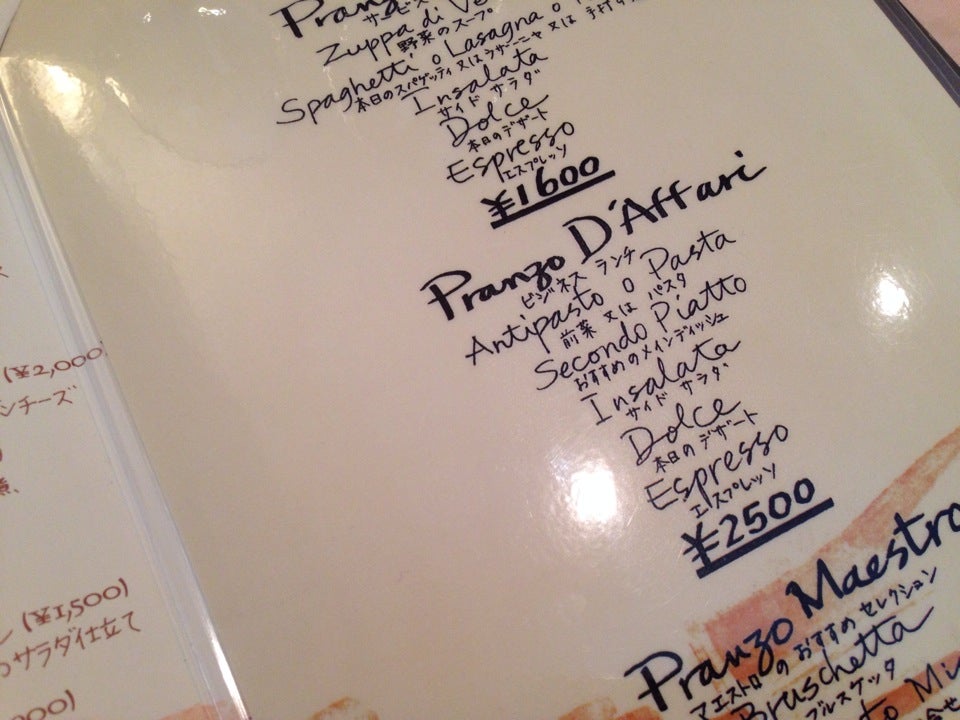 サービス
Zuppa di
野菜のスープ
Spaghetti o Lasagna o
本日のスパゲッティ 又は ラザーニャ 又は
Insalata
サイド サラダ
Dolce
本日のデザート
Espresso
エスプレッソ
¥1600
Pranzo D'Affari
ビジネス ランチ
Antipasto o Pasta
前菜 又は パスタ
Secondo Piatto
おすすめのメインディッシュ
Insalata
サイド サラダ
Dolce
本日のデザート
Espresso
エスプレッソ
¥2500
Pranzo Maestro
マエストロの おすすめ セレクション
Bruschetta
ブルスケッタ
(¥2,000)
ンチーズ
(¥1,500)
サラダ仕立て